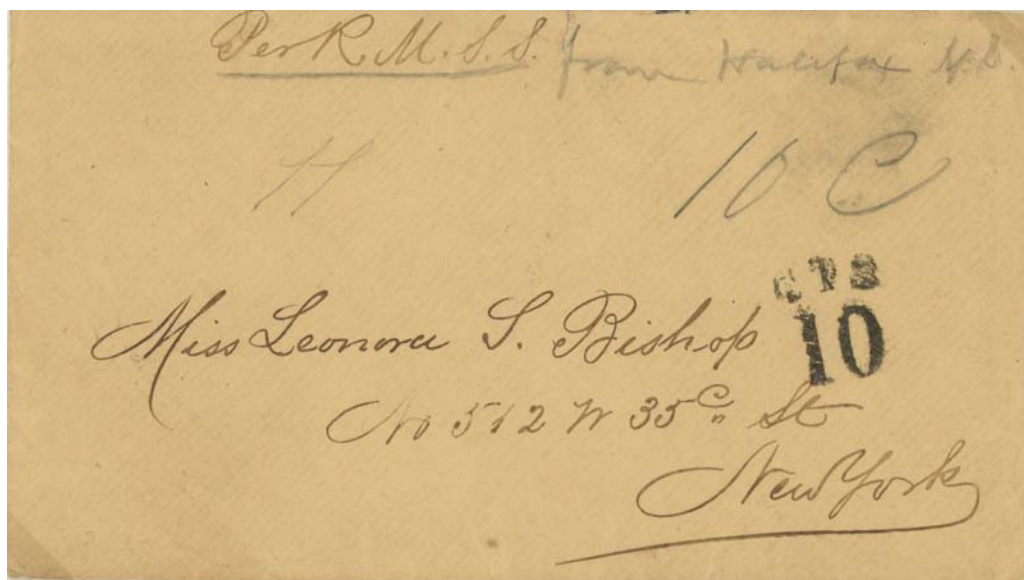 Per R.M.S.S. from Halifax N.S.
H
10 C
CTS
10
Miss Leonora S. Bishop
No 512 W 35 St
New York